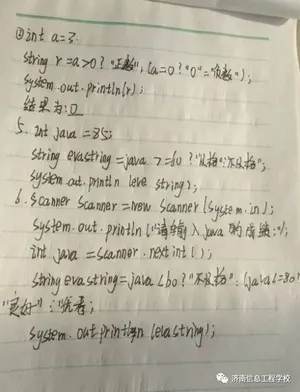 ② int a=3.
string r=a>0? "正数", (a=0? "0"="负数");
system.out.println(r);
结果为:0
5. int java =85;
string evastring=java >=60?"及格":"不及格";
system.out.println (eva string);
6. Scanner Scanner=new Scanner (System.in);
system.out.println ("请输入java的成绩:");
int java =scanner.next int();
string evastring=java<60? "不及格". (java<=80?
"良好":"优秀;
system.out.println (evastring);
济南信息工程学校